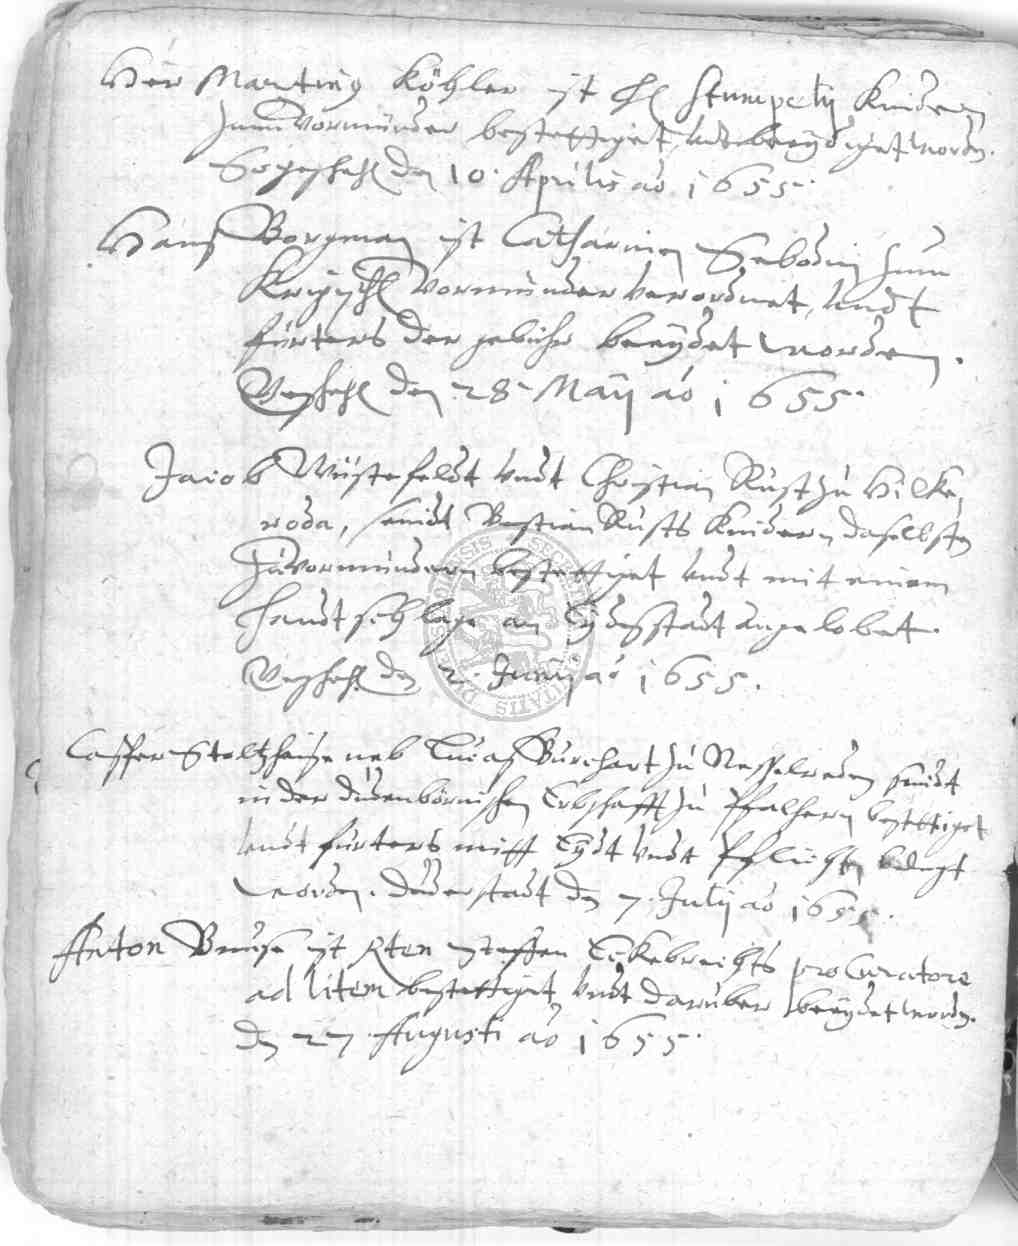 Her Martinus Köhler ist H. Stumpelij Kindern
zum Vormünder bestettiget, undt beeydiget worden.
So geschehen den 10. Aprilis ao 1655.
Hanß Borgman ist Catharinen Sebodin zum
Kriegischen Vormünder verordnet, undt
fürters der gebühr beeydet worden.
Geschehen den 28. Maij ao 1655.
Jacob Wüstefeldt undt Christian Rust zu Hilke,
roda, seindt Bastian Rusts Kindern daselbsten
zu vormündern bestettiget undt mit einem
handtschlage an Eydes stadt angelobet.
Geschehen den 2. Junij ao 1655.
Casper Stoltzheuse neb Lucas Burchart zu Nesselreden seindt
in der düdenbörnischen Erbschafft zu Pfalhern bestettiget
undt fürters mitt Eydt undt Pflichten belegt
worden. Duderstadt den 7. Julij ao 1655.
Anton Bruse ist Steffen Eickebrechts pro Curatore
ad litem bestettiget undt darüber beeydet worden.
den 27 Augusti ao 1655.
SECRETUM
CIVITATIS